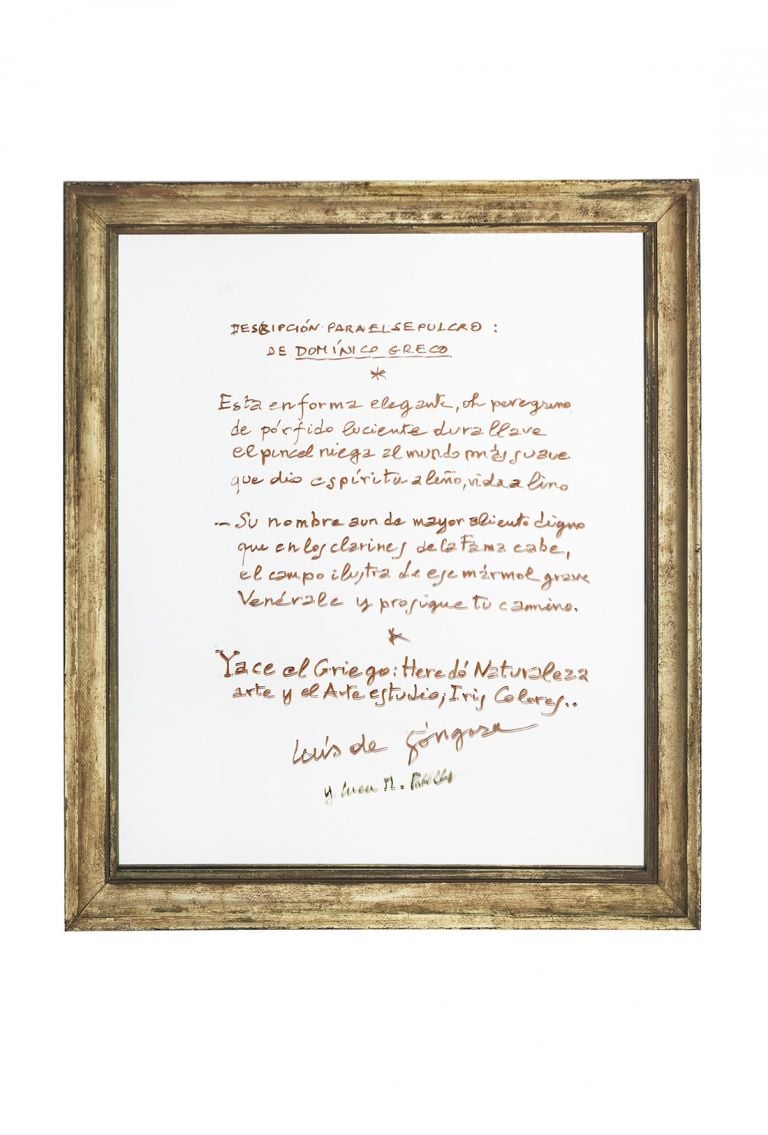 DESCRIPCIÓN PARA EL SEPULCRO :
DE DOMÍNICO GRECO
*
Esta en forma elegante, oh peregrino
de pórfido luciente dura llave
el pincel niega al mundo más suave
que dio espíritu a leño, vida a lino
– Su nombre aun de mayor aliento digno
que en los clarines de la Fama cabe,
el campo ilustra de ese mármol grave
Venérale y prosigue tu camino.
*
Yace el Griego: Heredó Naturaleza
arte y el Arte estudio; Iris Colores..
Luís de Góngora
y Luca M. Patella